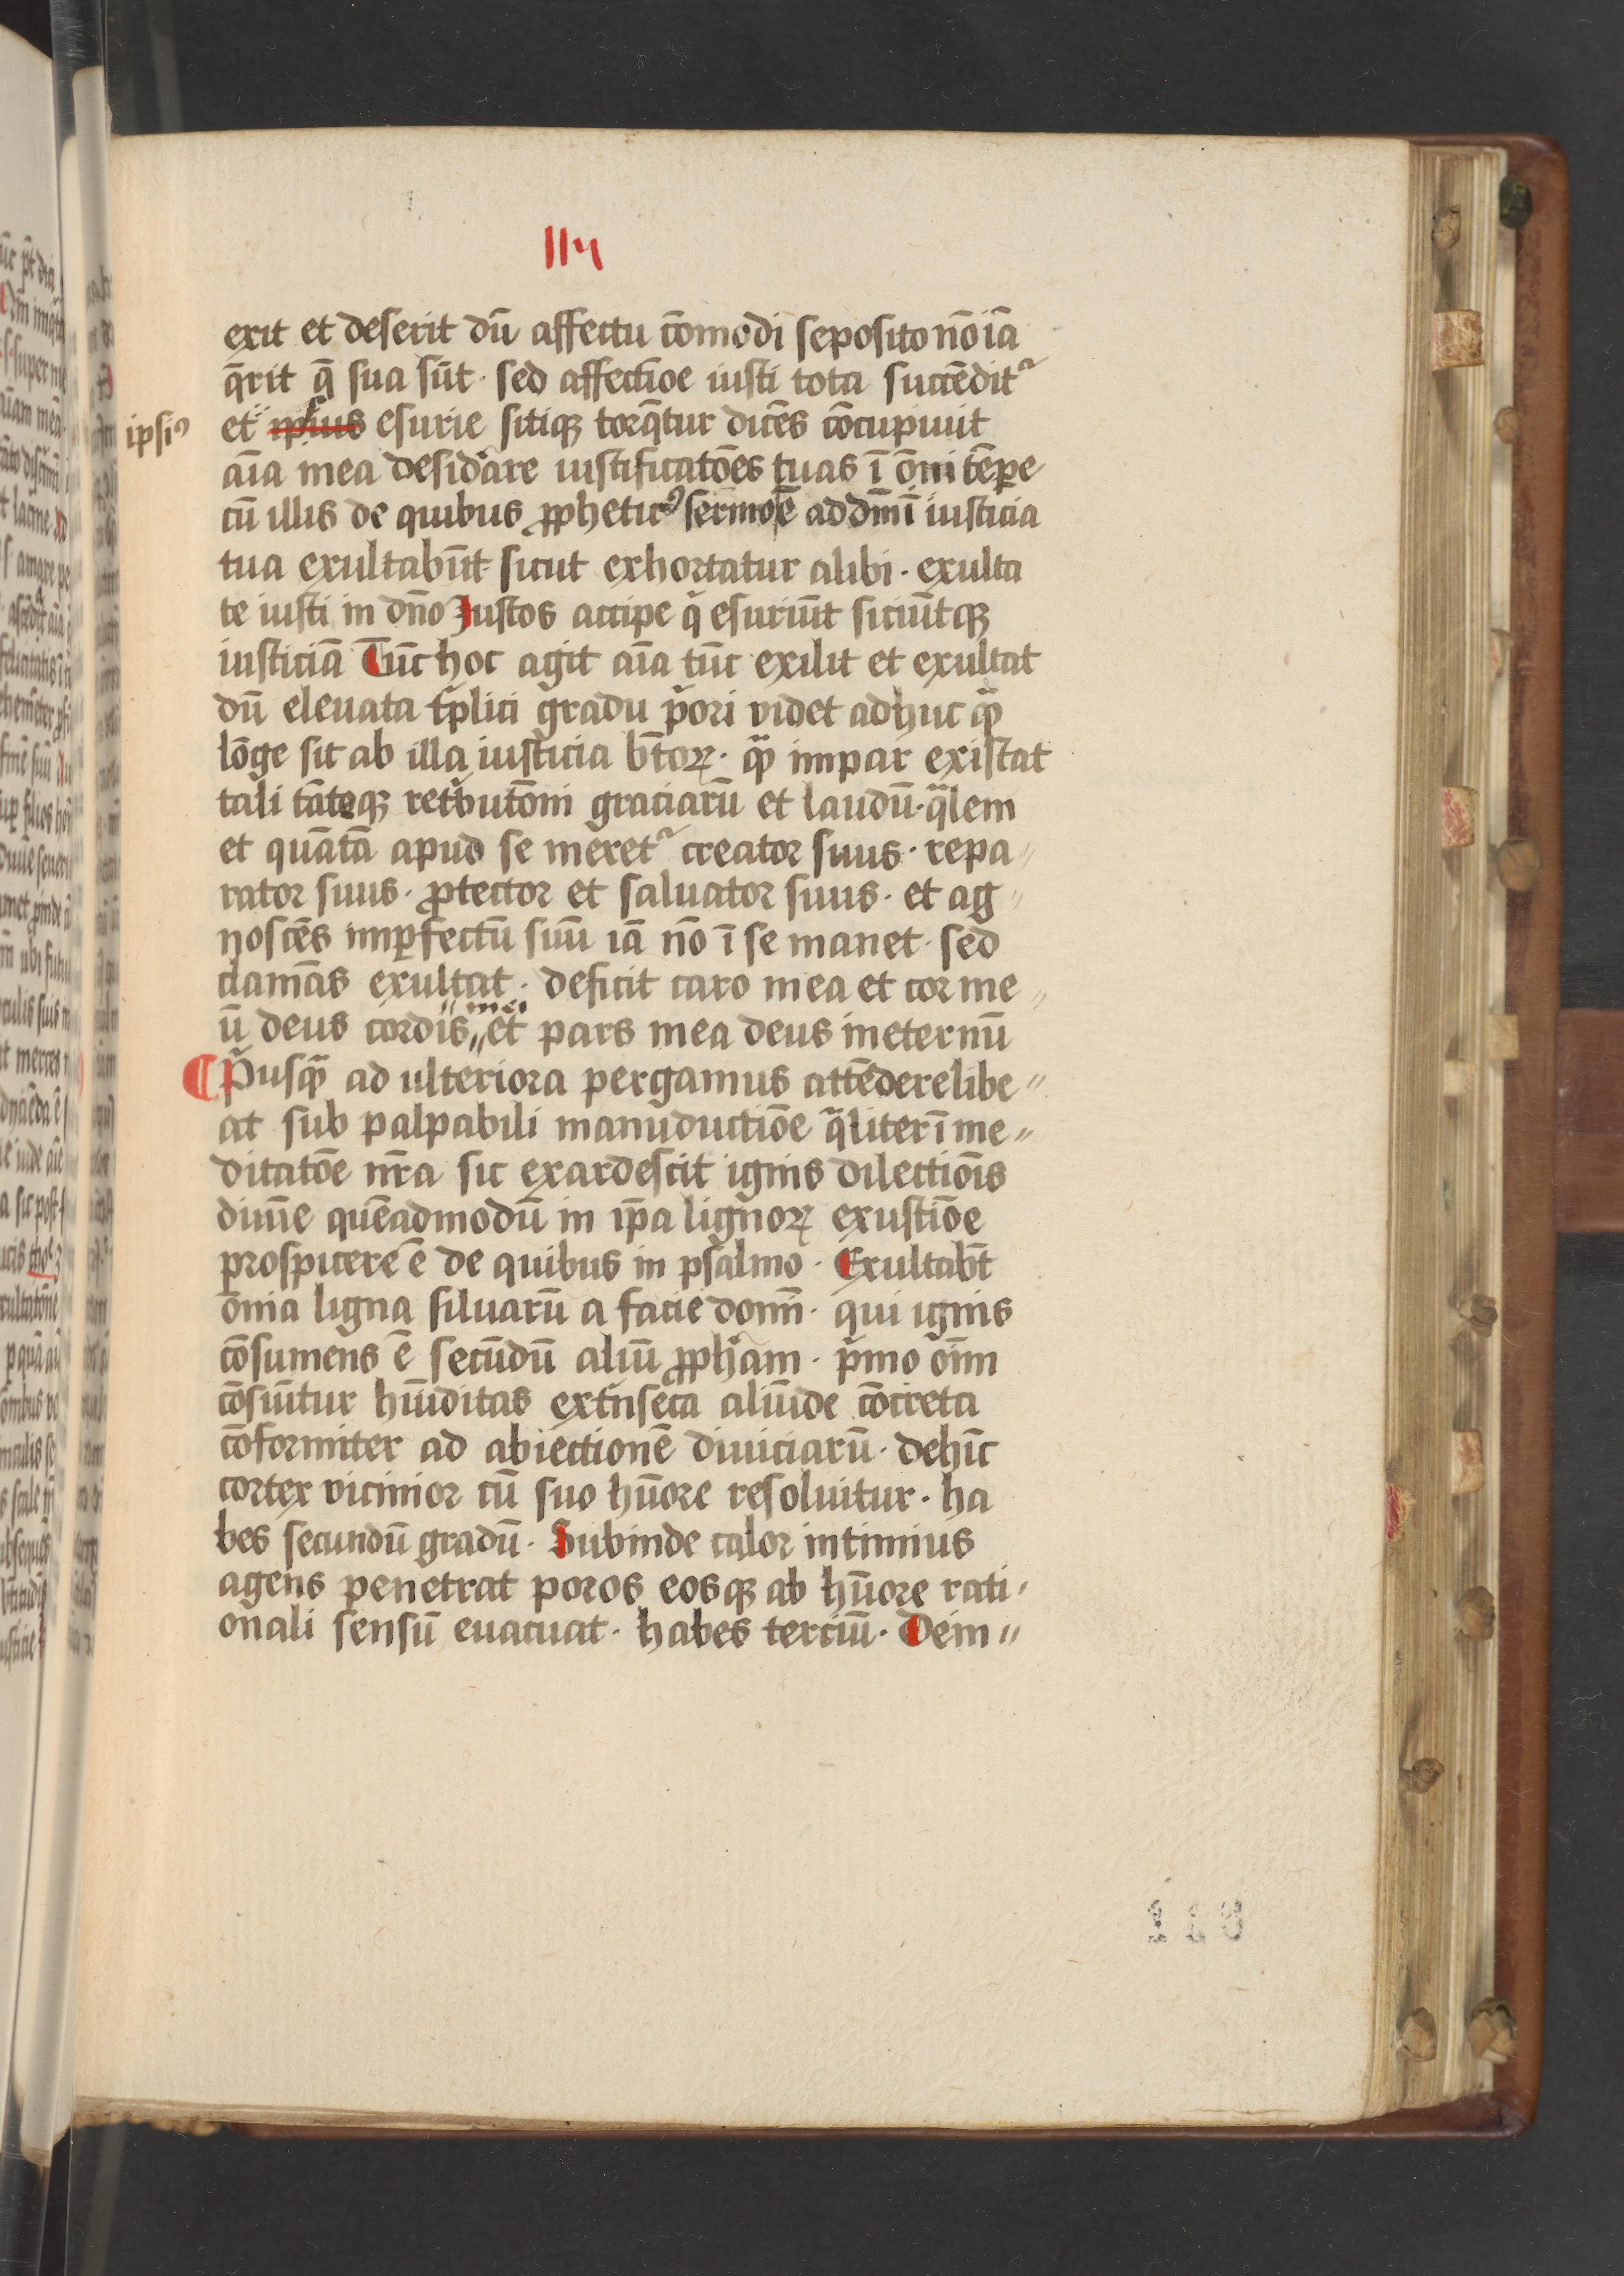 exit et deserit dū affectu cōmodi seposito nō iā
q̄rit q̄ sua sūt · sed affectioe iusti tota succēdit᷑
ipsiꝯ
et ipsius esurie sitiqꝫ torq̄tur dicēs cōcupiuit
aīa mea desid̾are iustificatōes tuas ī om̄i tēꝑe
cū illis de quibus ꝓphetic̾ꝯ sermoē ad dm̄ ī iusticia
tua exultabūt sicut exhortatur alibi · exulta
te iusti in dn̄o Iustos accipe q̇ esuriūt siciūtqꝫ
iusticiā Tūc hoc agit aīa tūc exilit et exultat
dū eleuata tͥplici gradu pͥori videt adhuc qᷓꝫ
lōge sit ab illa iusticia bt̄oꝝ · qᷓꝫ impar existat
tali tāteqꝫ retͥbutōni graciarū et laudū · qᷓlem
et quātā apud se meret᷑ creator suus · repa〃
rator suus · ꝓtector et saluator suus · et ag〃
noscēs imꝑfectū suū iā nō ī se manet · sed
clamās exultat · deficit caro mea et cor me〃
ū deus cordis〃 mei et pars mea deus ineternū
¶ Pͥusqᷓꝫ ad ulteriora pergamus attēdere libe〃
at sub palpabili manuductiōe qᷓliter ī me〃
ditatōe nr̄a sic exardescit ignis dilectiōis
diuīe quēadmodū in ip̄a lignoꝝ exustiōe
prospicere ē de quibus in psalmo · Exultabt̄
om̄ia ligna siluarū a facie domī · qui ignis
cōsumens ē secūdū aliū ꝓph̄am · pͥmo om̄ī
cōsumīt̄ur hūiditas extͥnseca aliūde cōcreta
cōformiter ad abiectionē diuiciarū · dehīc
cortex vicinior cū suo hūore resoluitur · ha
bes secundū gradū · Subinde calor intimius
agens penetrat poros eosqꝫ ab hūore rati〃
onali sensū euacuat · habes terciū · Dein〃